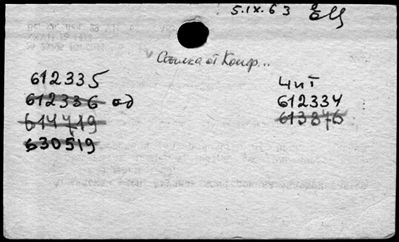 5.IX.63
Ссылка от Конф..
612335
612336 од
614719
630519
Чит
612334
613876